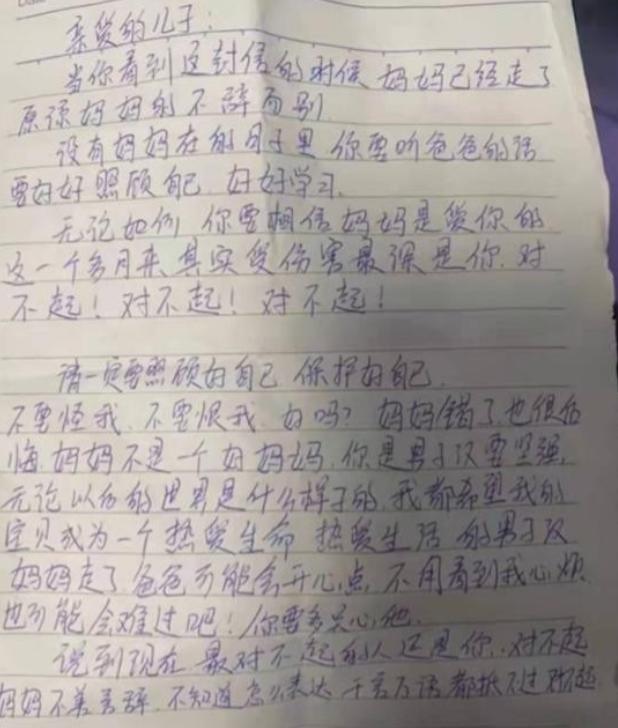 亲爱的儿子：
当你看到这封信的时候 妈妈已经走了
原谅妈妈的不辞而别
没有妈妈在的日子里 你要听爸爸的话
要好好照顾自己. 好好学习.
无论如何, 你要相信妈妈是爱你的
这一个多月来, 其实受伤害最深是你. 对
不起！对不起！对不起！
请一定要照顾好自己 保护好自己.
不要怪我. 不要恨我. 好吗？妈妈错了, 也很后
悔. 妈妈不是一个好妈妈. 你是男子汉要坚强,
无论以后的世界是什么样子的, 我都希望我的
宝贝成为一个热爱生命 热爱生活 的男子汉
妈妈走了 爸爸可能会开心点, 不用看到我心烦.
也可能会难过吧！你要多关心他.
说到现在, 最对不起的人还是你. 对不起
妈妈不善言辞. 不知道怎么表达 千言万语都抵不过对不起